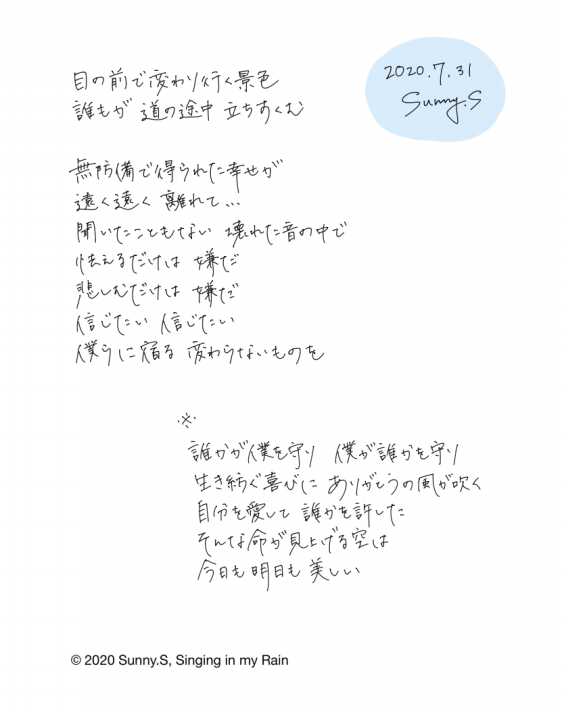 2020.7.31
Sunny.S
目の前で変わり行く景色
誰もが 道の途中 立ちすくむ
無防備で得られた幸せが
遠く遠く 離れて...
聞いたこともない 壊れた音の中で
怯えるだけは 嫌だ
悲しむだけは 嫌だ
信じたい 信じたい
僕らに宿る 変わらないものを
※
誰かが僕を守り 僕が誰かを守り
生き紡ぐ喜びに ありがとうの風が吹く
自分を愛して 誰かを許した
そんな命が見上げる空は
今日も明日も 美しい
© 2020 Sunny.S, Singing in my Rain